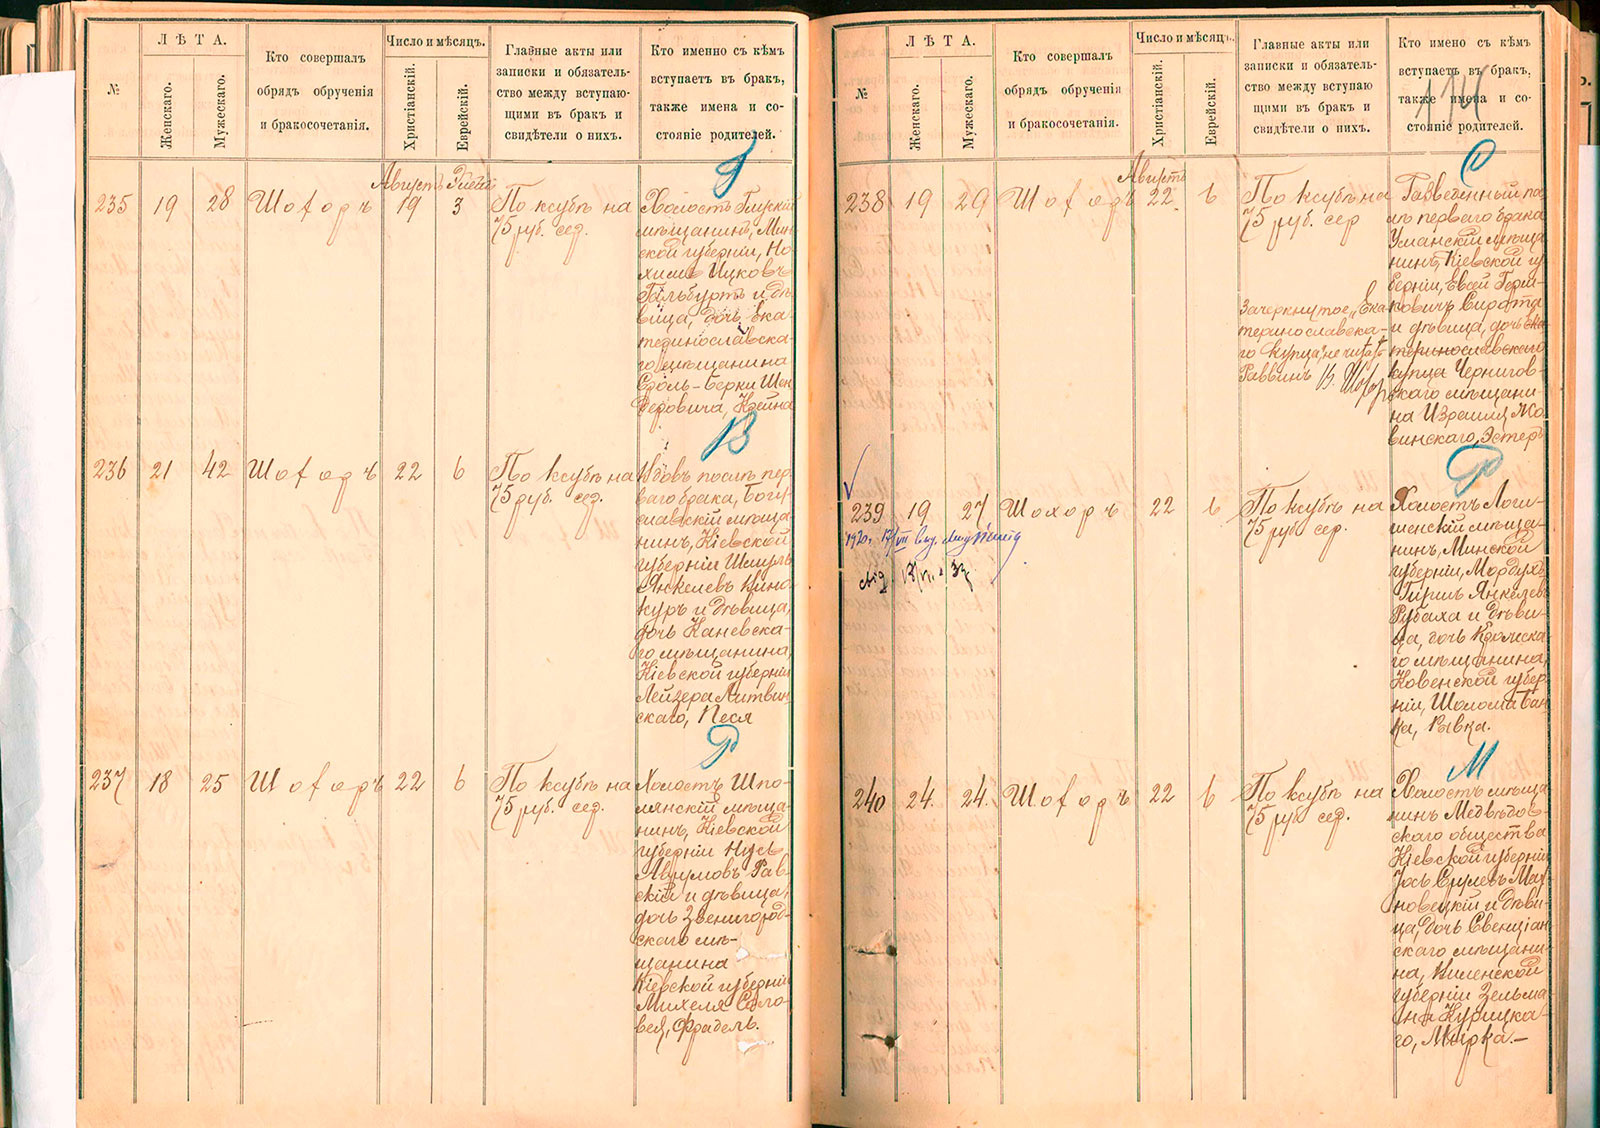 №
ЛѢТА.
Женскаго.
Мужескаго.
Кто совершалъ
обрядъ обрученія
и бракосочетанія.
Число и мѣсяцъ.
Христіанскій.
Еврейскій.
Главные акты или
записки и обязатель-
ство между вступаю-
щими въ бракъ и
свидѣтели о нихъ.
Кто именно съ кѣмъ
вступаетъ въ бракъ,
также имена и со-
стояніе родителей.
Августъ
235 19 28 Шохоръ 19 3
По ксубѣ на
75 руб. сер.
Холостъ Глускій
мѣщанинъ, Мин-
ской губерніи, Но-
химъ Ицковъ
Гальбуртъ и дѣ-
вица, дочь Ека-
теринославска-
го мѣщанина
Берки Шен-
деровича, Хейна
В
236 21 42 Шохоръ 22 6
По ксубѣ на
75 руб. сер.
Вдовъ послѣ пер-
ваго брака, Богу-
славскій мѣща-
нинъ, Кіевской
губерніи Шмуль
Янкелевъ Вино-
куръ и дѣвица,
дочь Каневска-
го мѣщанина,
Кіевской губерніи
Лейзера Литвин-
скаго, Песя
Р
237 18 25 Шохоръ 22 6
По ксубѣ на
75 руб. сер.
Холостъ Шпо-
лянскій мѣща-
нинъ, Кіевской
губерніи Нусь
Аврумовъ Рав-
скій и дѣвица,
дочь Звенигород-
скаго мѣ-
щанина
Кіевской губерніи
Михеля Соло-
вея, Фрадель.
№
ЛѢТА.
Женскаго.
Мужескаго.
Кто совершалъ
обрядъ обрученія
и бракосочетанія.
Число и мѣсяцъ.
Христіанскій.
Еврейскій.
Главные акты или
записки и обязатель-
ство между вступаю
щими въ бракъ и
свидѣтели о нихъ.
Кто имено съ кѣмъ
вступаетъ въ бракъ,
также имена и со-
стояніе родителей.
114
С
Августъ
238 19 29 Шохоръ 22 6
По ксубѣ на
75 руб. сер
Зачеркнутое „Ека-
теринославска-
го купца" не читать
Раввинъ В. Шохоръ
Разведенный по-
слѣ перваго брака
Уманскій мѣща
нинъ, Кіевской гу
берніи, Евсей Герш-
ковичъ Сирота
и дѣвица, дочь Ека
теринославскаго
купца Чернигов-
скаго мѣщани-
на Израиля
Эстеръ
Р
239 19 27 Шохоръ 22 6
По ксубѣ на
75 руб. сер.
Холостъ Логи-
шенскій мѣща-
нинъ, Минской
губерніи, Мордухъ
Гиршъ Янкелевъ
Рубаха и дѣви-
ца, дочь
го мѣщанина,
Ковенской губер-
ніи, Шолома
Рывка.
М
240 24. 24. Шохоръ 22 6
По ксубѣ на
75 руб. сер.
Холостъ мѣща
нинъ Медвѣдов-
скаго общества
Кіевской губерніи
Іось Срулевъ Мах-
новецкій и дѣви-
ца, дочь Свенцян
скаго мѣщани-
на, Виленской
губерніи Зельма
на Курицка-
го, Мырка.—